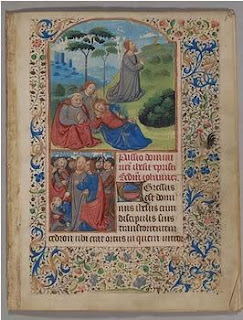 Passio domini
nri ihesu xpristi
iohannem
Egressus
est domi
nus ihesus cum
discipulis suis
trans torrentem
cedron ubi erat ortus in quem